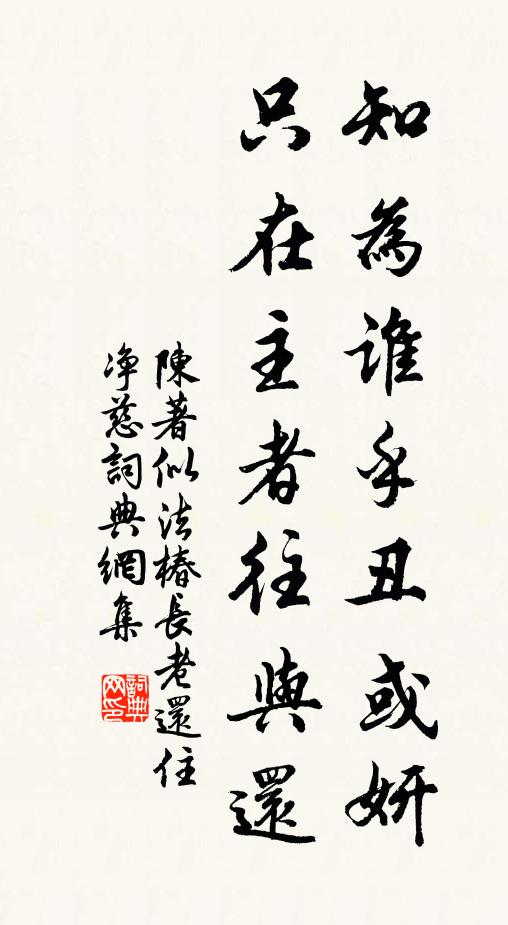 知為誰乎丑或妍
只在主者往與還
陳著似法椿長老還住
净慈詞典網集
詞典
网印